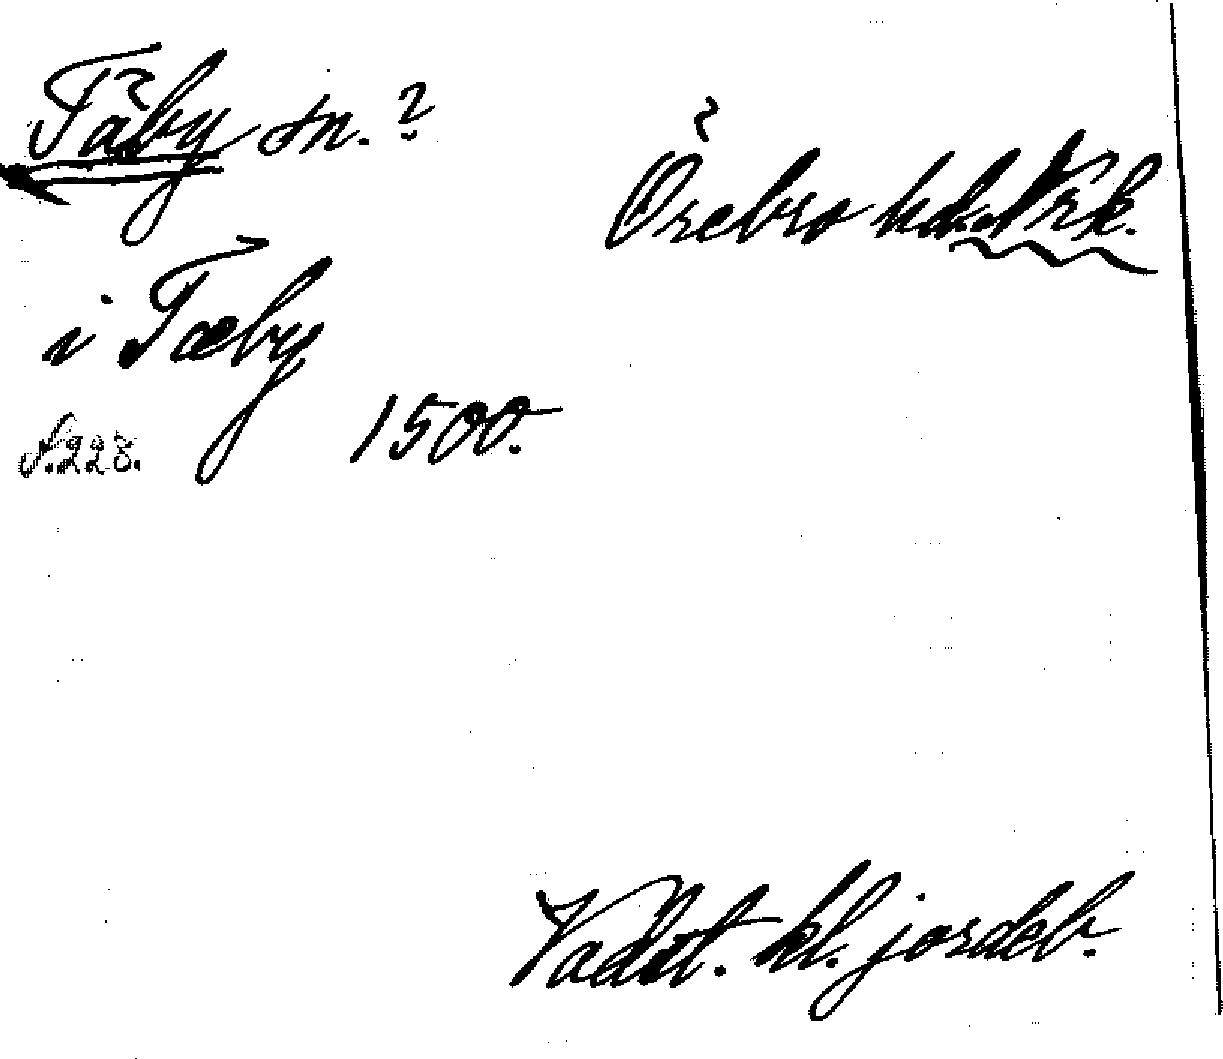 Täby sn.?
Örebro hd. Nrk.
i Tæby
1500.
S. 228.
Vadst. kl. jordeb.